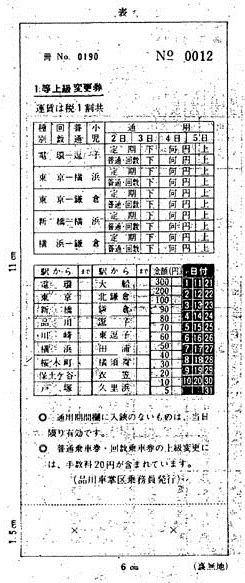 表
冊 No. 0190 No 0012
1.等上級変更券
運賃は税1割共
種別 回数 普通 小児 通用
2日 3日 4日 5日
電環―逗子 定期 下 何 円 上
普通・回数 下 何 円 上
東京―横浜 定期 下 何 円 上
普通・回数 下 何 円 上
東京―鎌倉 定期 下 何 円 上
普通・回数 下 何 円 上
新橋―横浜 定期 下 何 円 上
普通・回数 下 何 円 上
横浜―鎌倉 定期 下 何 円 上
普通・回数 下 何 円 上
駅から まで 駅から まで 金額(円) 日付
電環 大船 300 1 11 21
東京 北鎌倉 200 2 12 22
新橋 鎌倉 100 3 13 23
品川 逗子 90 4 14 24
川崎 東逗子 80 5 15 25
横浜 田浦 70 6 16 26
桜木町 横須賀 60 7 17 27
保土ケ谷 衣笠 50 8 18 28
戸塚 久里浜 40 9 19 29
30 10 20 30
20
10
5 31
○ 通用期間欄に入鋏のないものは、当日
限り有効です。
○ 普通乗車券・回数乗車券の上級変更に
は、手数料20円が含まれています。
(品川車掌区乗務員発行)
11cm
1.5cm
6cm
(裏無地)